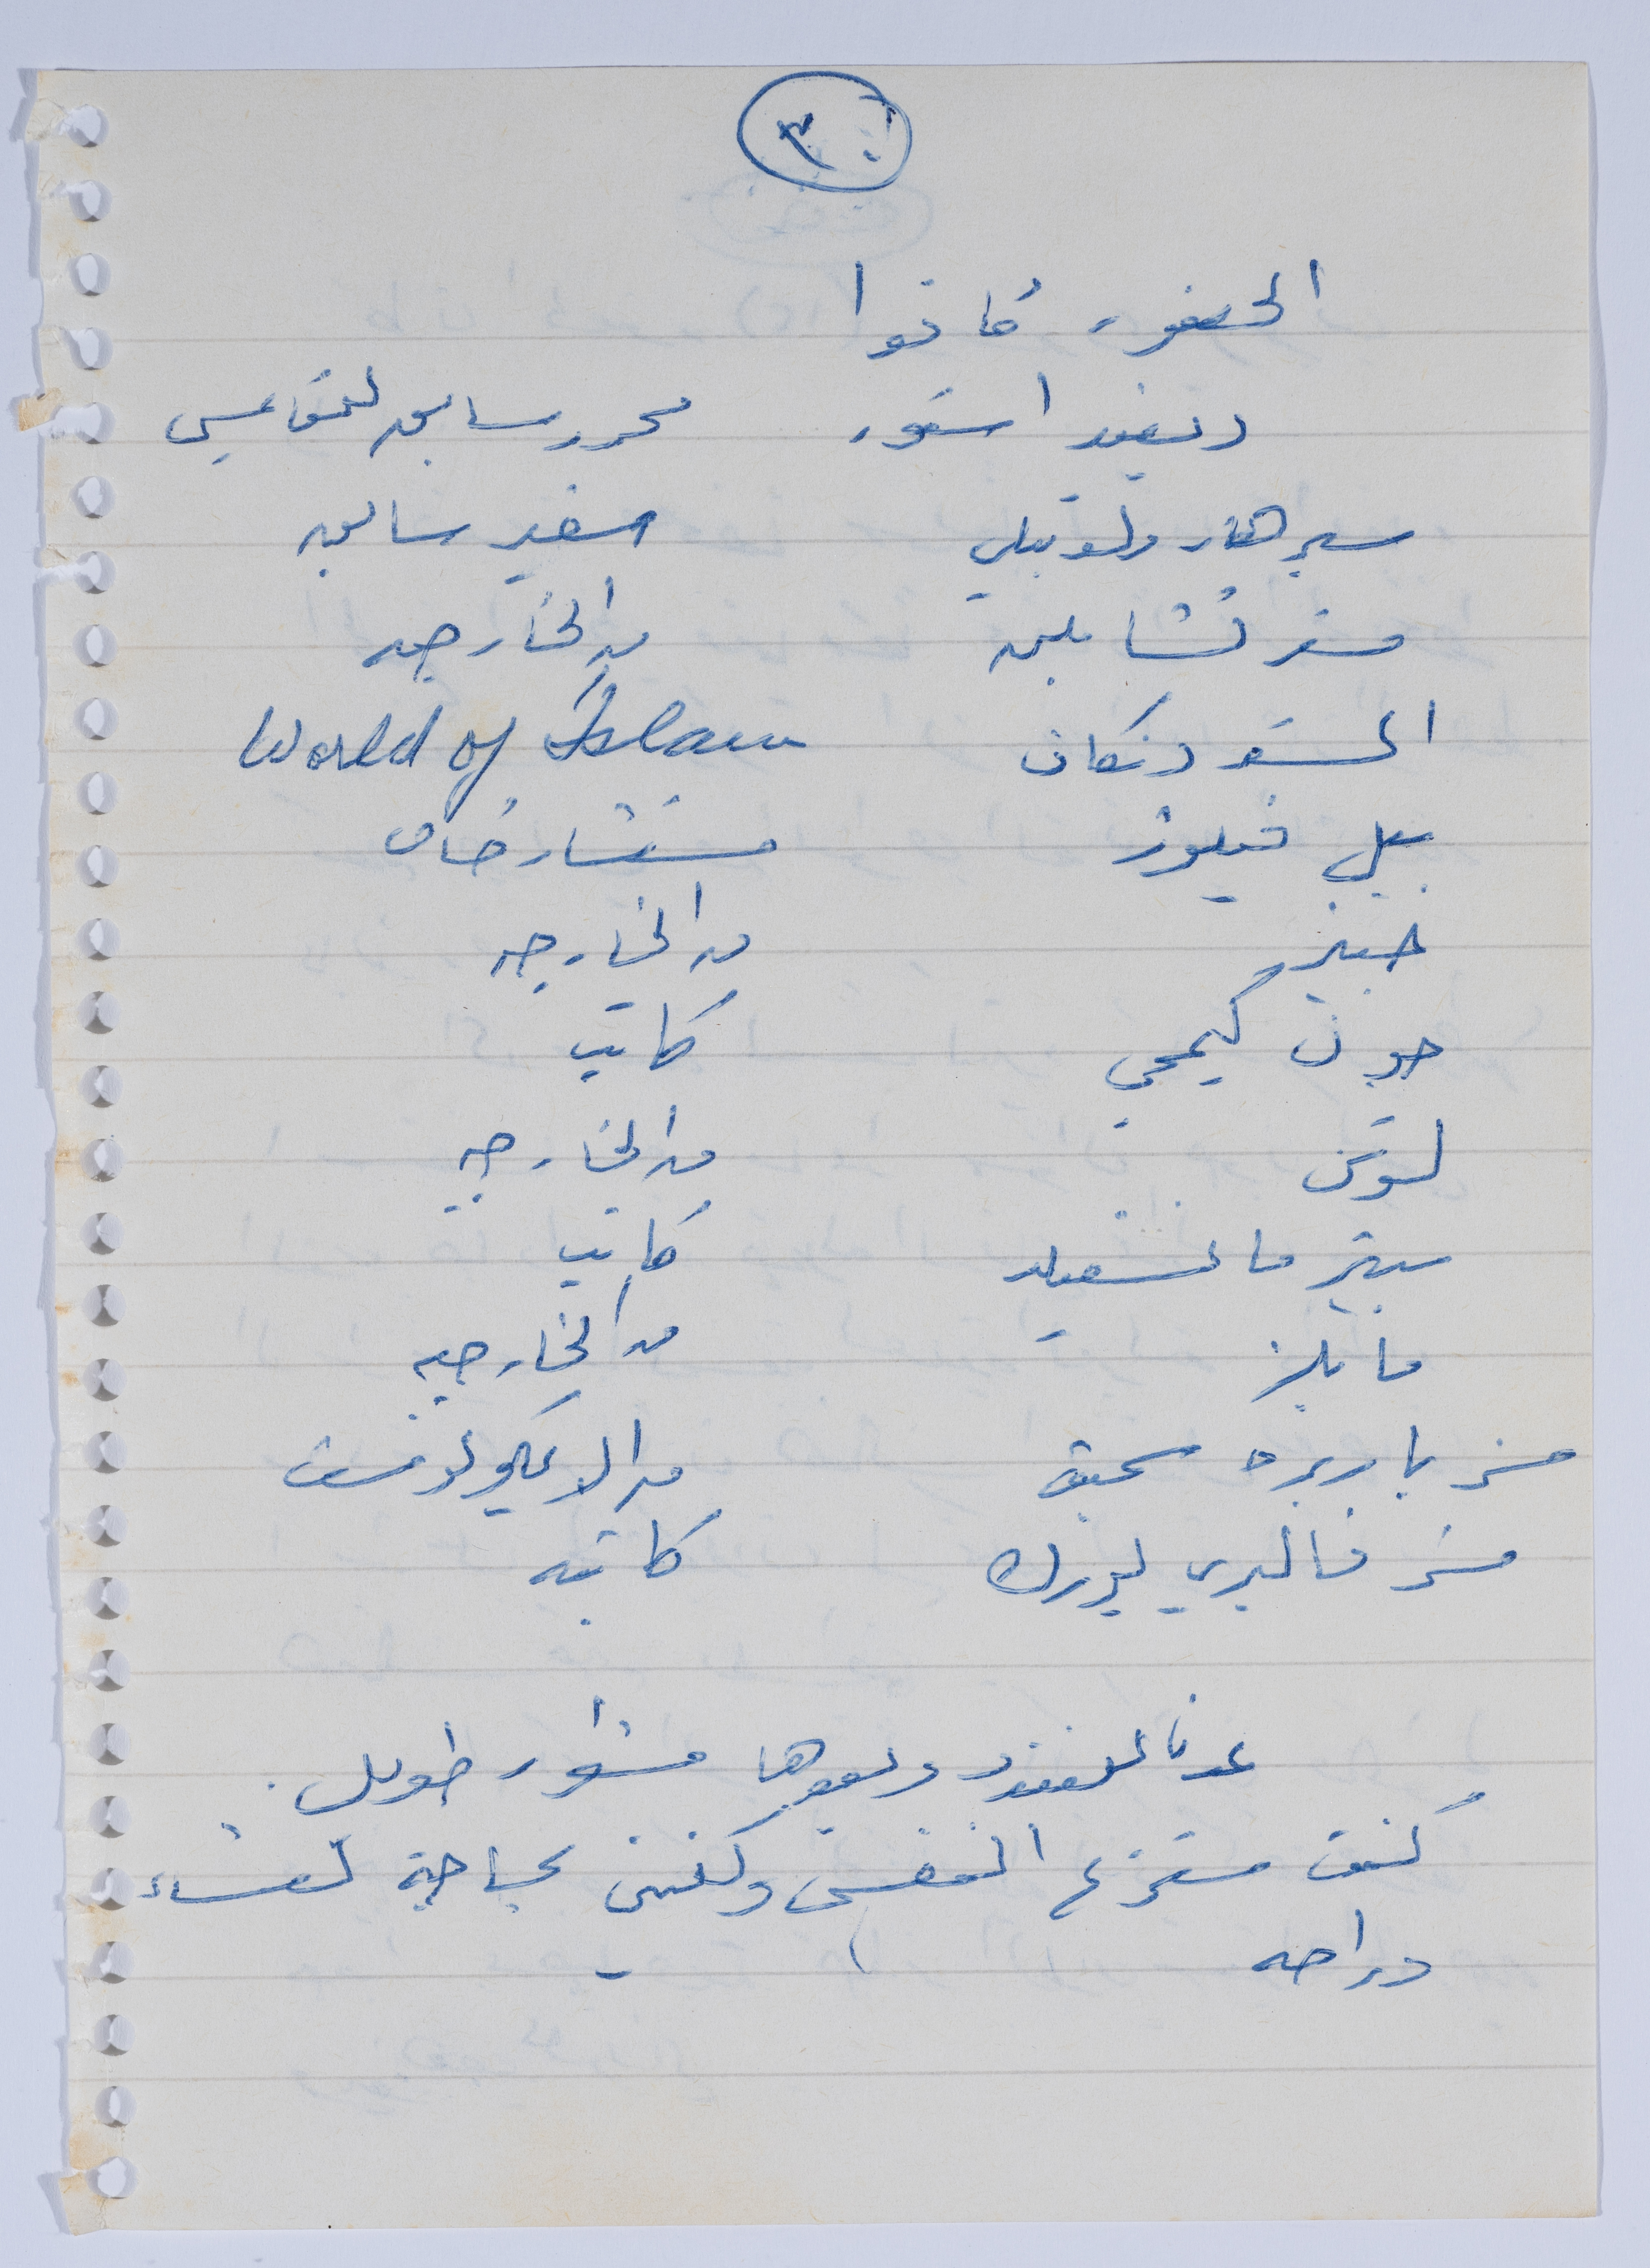 ٣
الحضور كانوا
ديفيد استور محرر سابق للتايمس
سير هارولد بيلي سفير سابق
مستر تشابلين من الخارجيه
المستر دنكان World of Islam
بيل فيلوز مستشار خاص
من الخارجيه
جون كيمحي كاتب
لوتن من الخارجيه
بيتر مانسفيلد كاتب
مايلز من الخارجيه
مسز باربره سميث من الايكونومست
مسز فاليري يورك كاتبه
عدنا للفندق وبعدها مشوار طويل.
كنت النفس ولكنني بحاجة لعشاء
وراحه